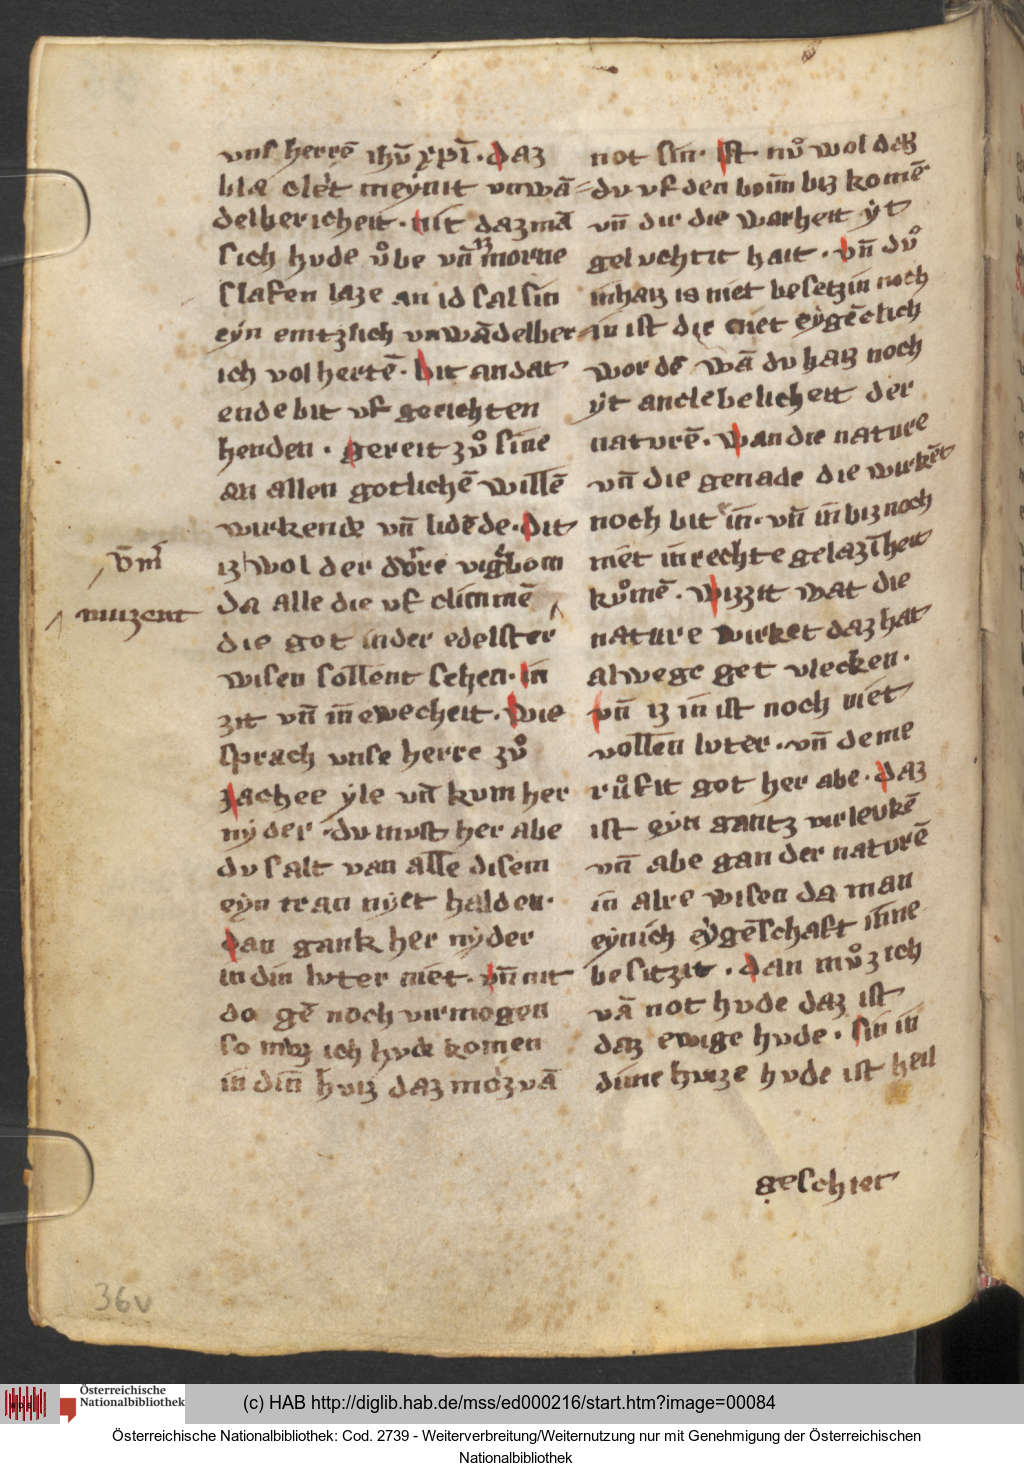 vnſ herrē ihū xpī . daz
bla cleit meýnit vnwā
delbericheit . nit daz mā
ſich hude uͦbe vn̄ morne
ſlafen laze an id ſal ſin
eýn emtzlich vnwādelber
ich vol hertē . bit an dat
ende bit vf gerichten
henden . gereit zuͦ ſine
an allen gotlichē willē
wirkende vn̄ lidēde . dit
iz wol der dorre vigbom
da alle die vf climmē
die got in der edelſter
wiſen ſollent ſehen . in
zit vn̄ in ewecheit . wie
ſprach vnſe herre zuͦ
zachee ýle vn̄ kum her
nýder . du muſt her abe
du ſalt van alle diſem
eýn tran nýet halden .
dan gank her nýder
in din luter niet . vn̄ nit
do gē noch vermogen
ſo muz ich hude komen
in din huiz daz moz vā
vm̄
muzent
not ſin . iſt nuͦ wol daz
du vf den boim biz komē
vn̄ dir die warheit ýt
geluchtit hait . vn̄ duͦ
inhaiz is niet beſetzin noch
in iſt die niet eýgēclich
wordē wā du haiz noch
ýt anclebelicheit der
naturē . wan die nature
vn̄ die genade die wirkēt
noch bit in . vn̄ in biz noch
niet in rechte gelazīheit
kuͦmē . wizzit wat die
nature wirket daz hat
alwege get vlecken .
vn̄ iz in iſt noch niet
vollen luter . vn̄ deme
ruͦfit got her abe . daz
iſt eýn gantz virleukē
vn̄ abe gan der naturē
in alre wiſen da man
eýnich eýgēſchaft inne
beſitzit . dan muͦz ich
vā not hude daz iſt
daz ewige hude . ſin in
dime huize hude iſt heil
geſchiet
36v
Österreichische
Nationalbibliothek
(c) HAB http://diglib.hab.de/mss/ed000216/start.htm?image=00084
Österreichische Nationalbibliothek: Cod. 2739 - Weiterverbreitung/Weiternutzung nur mit Genehmigung der Österreichischen
Nationalbibliothek